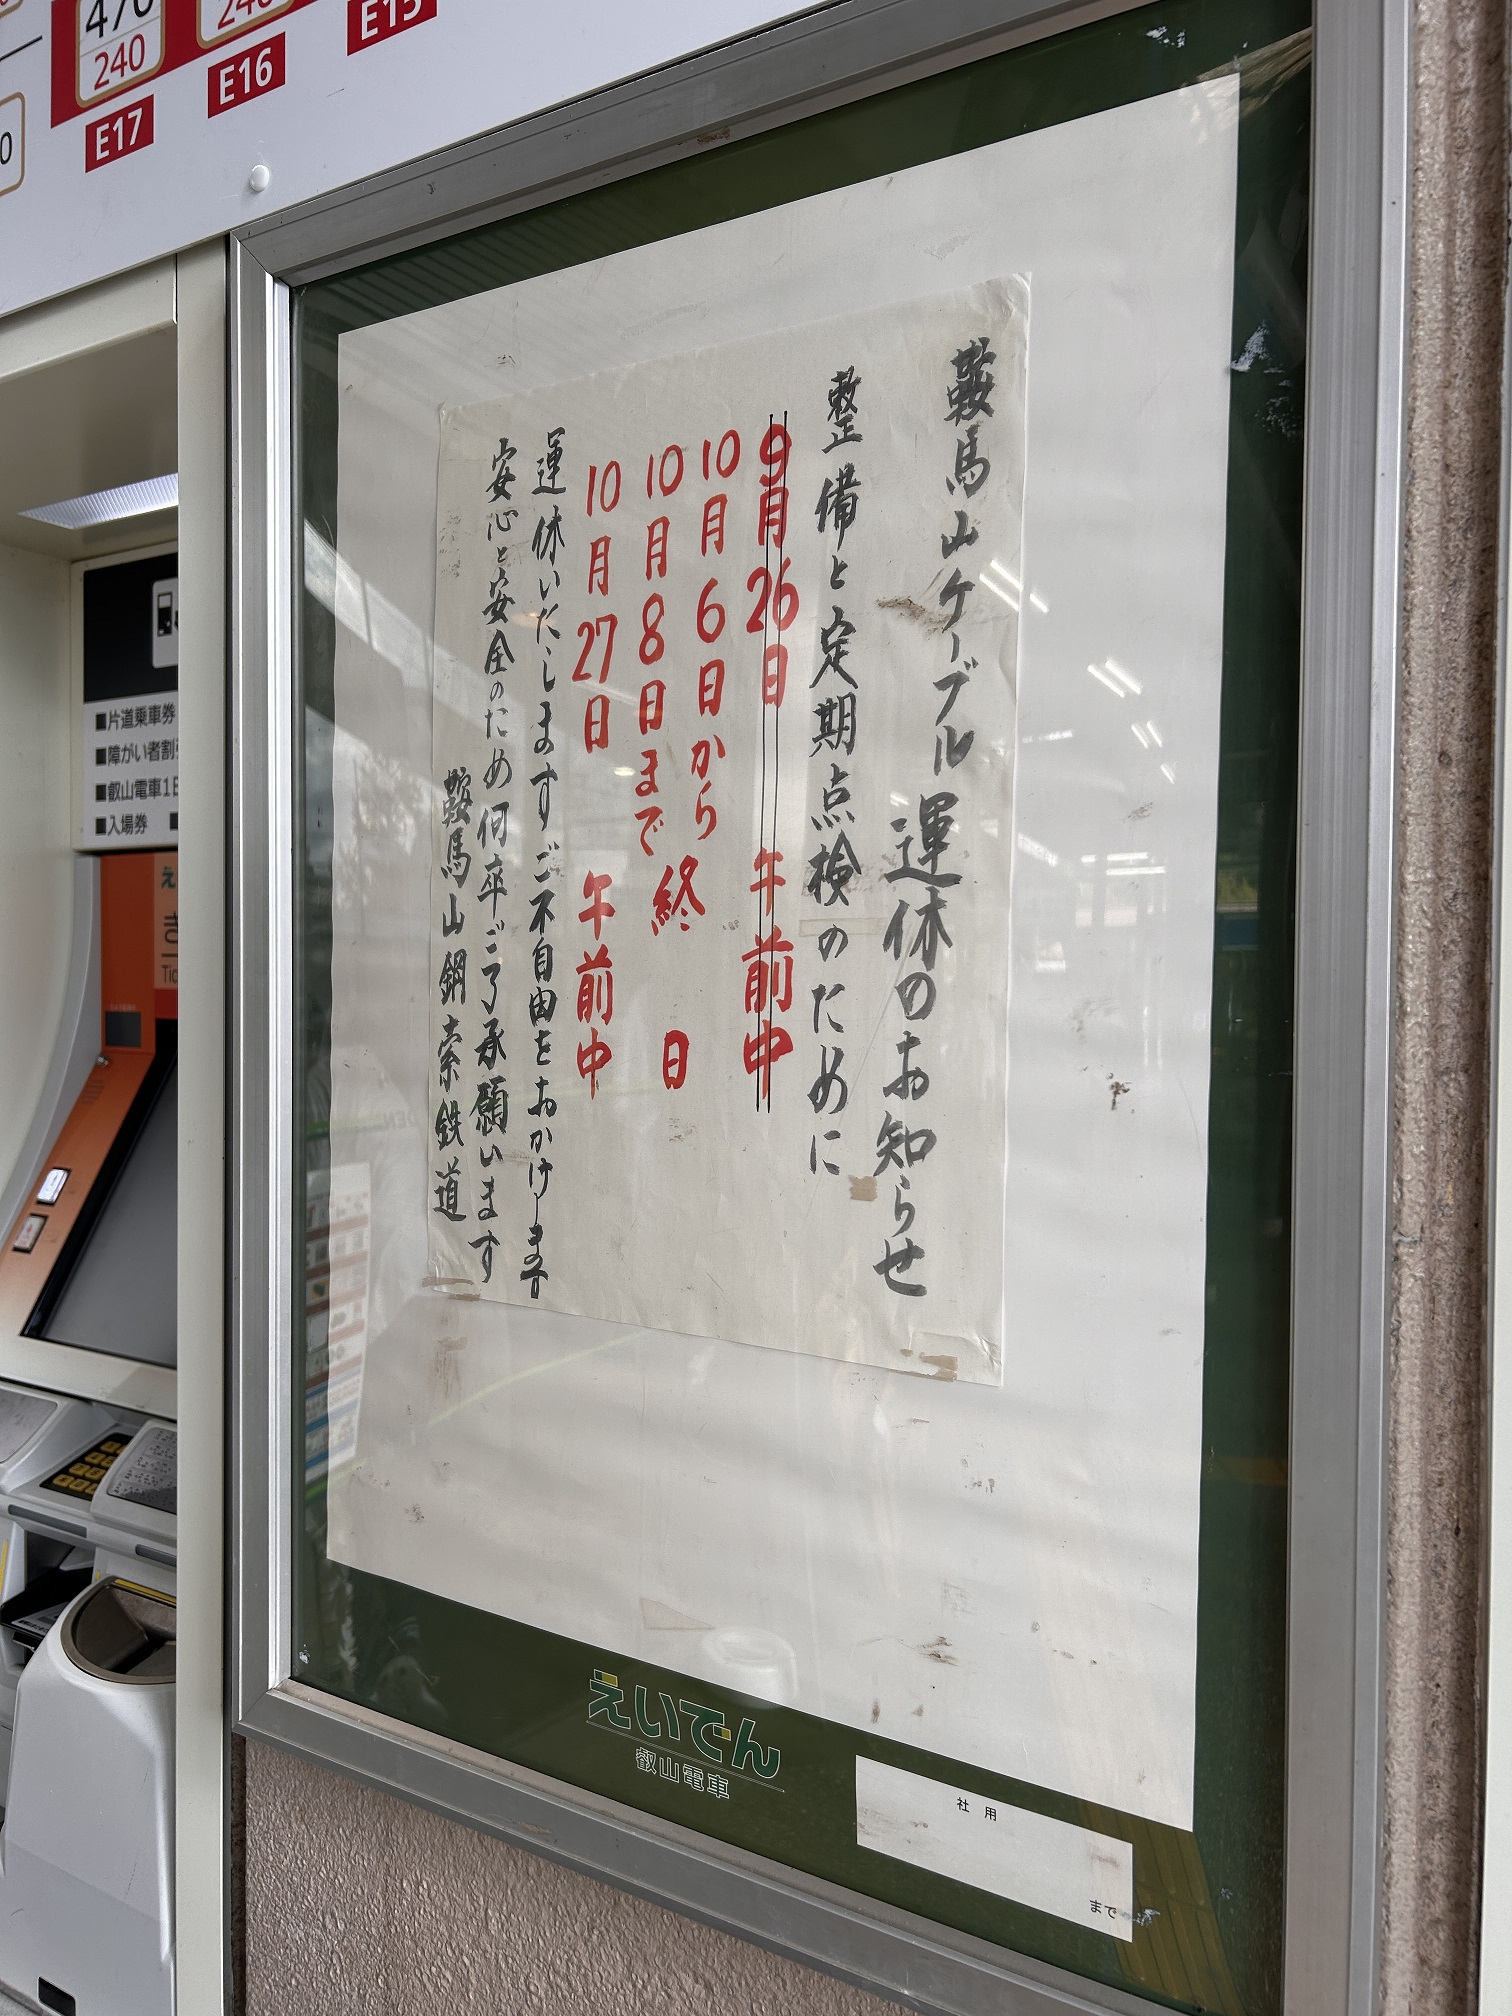 470
240
240
E17
E16
E15
鞍馬山ケーブル運休のお知らせ
整備と定期点検のために
9月26日 午前中
10月6日から
10月8日まで
終日
10月27日 午前中
運休いたします ご不自由をおかけします
安心と安全のため何卒ご了承願います
鞍馬山鋼索鉄道
■片道乗車券
■障がい者割
■叡山電車1日
■入場券
えいでん
叡山電車
社用
まで